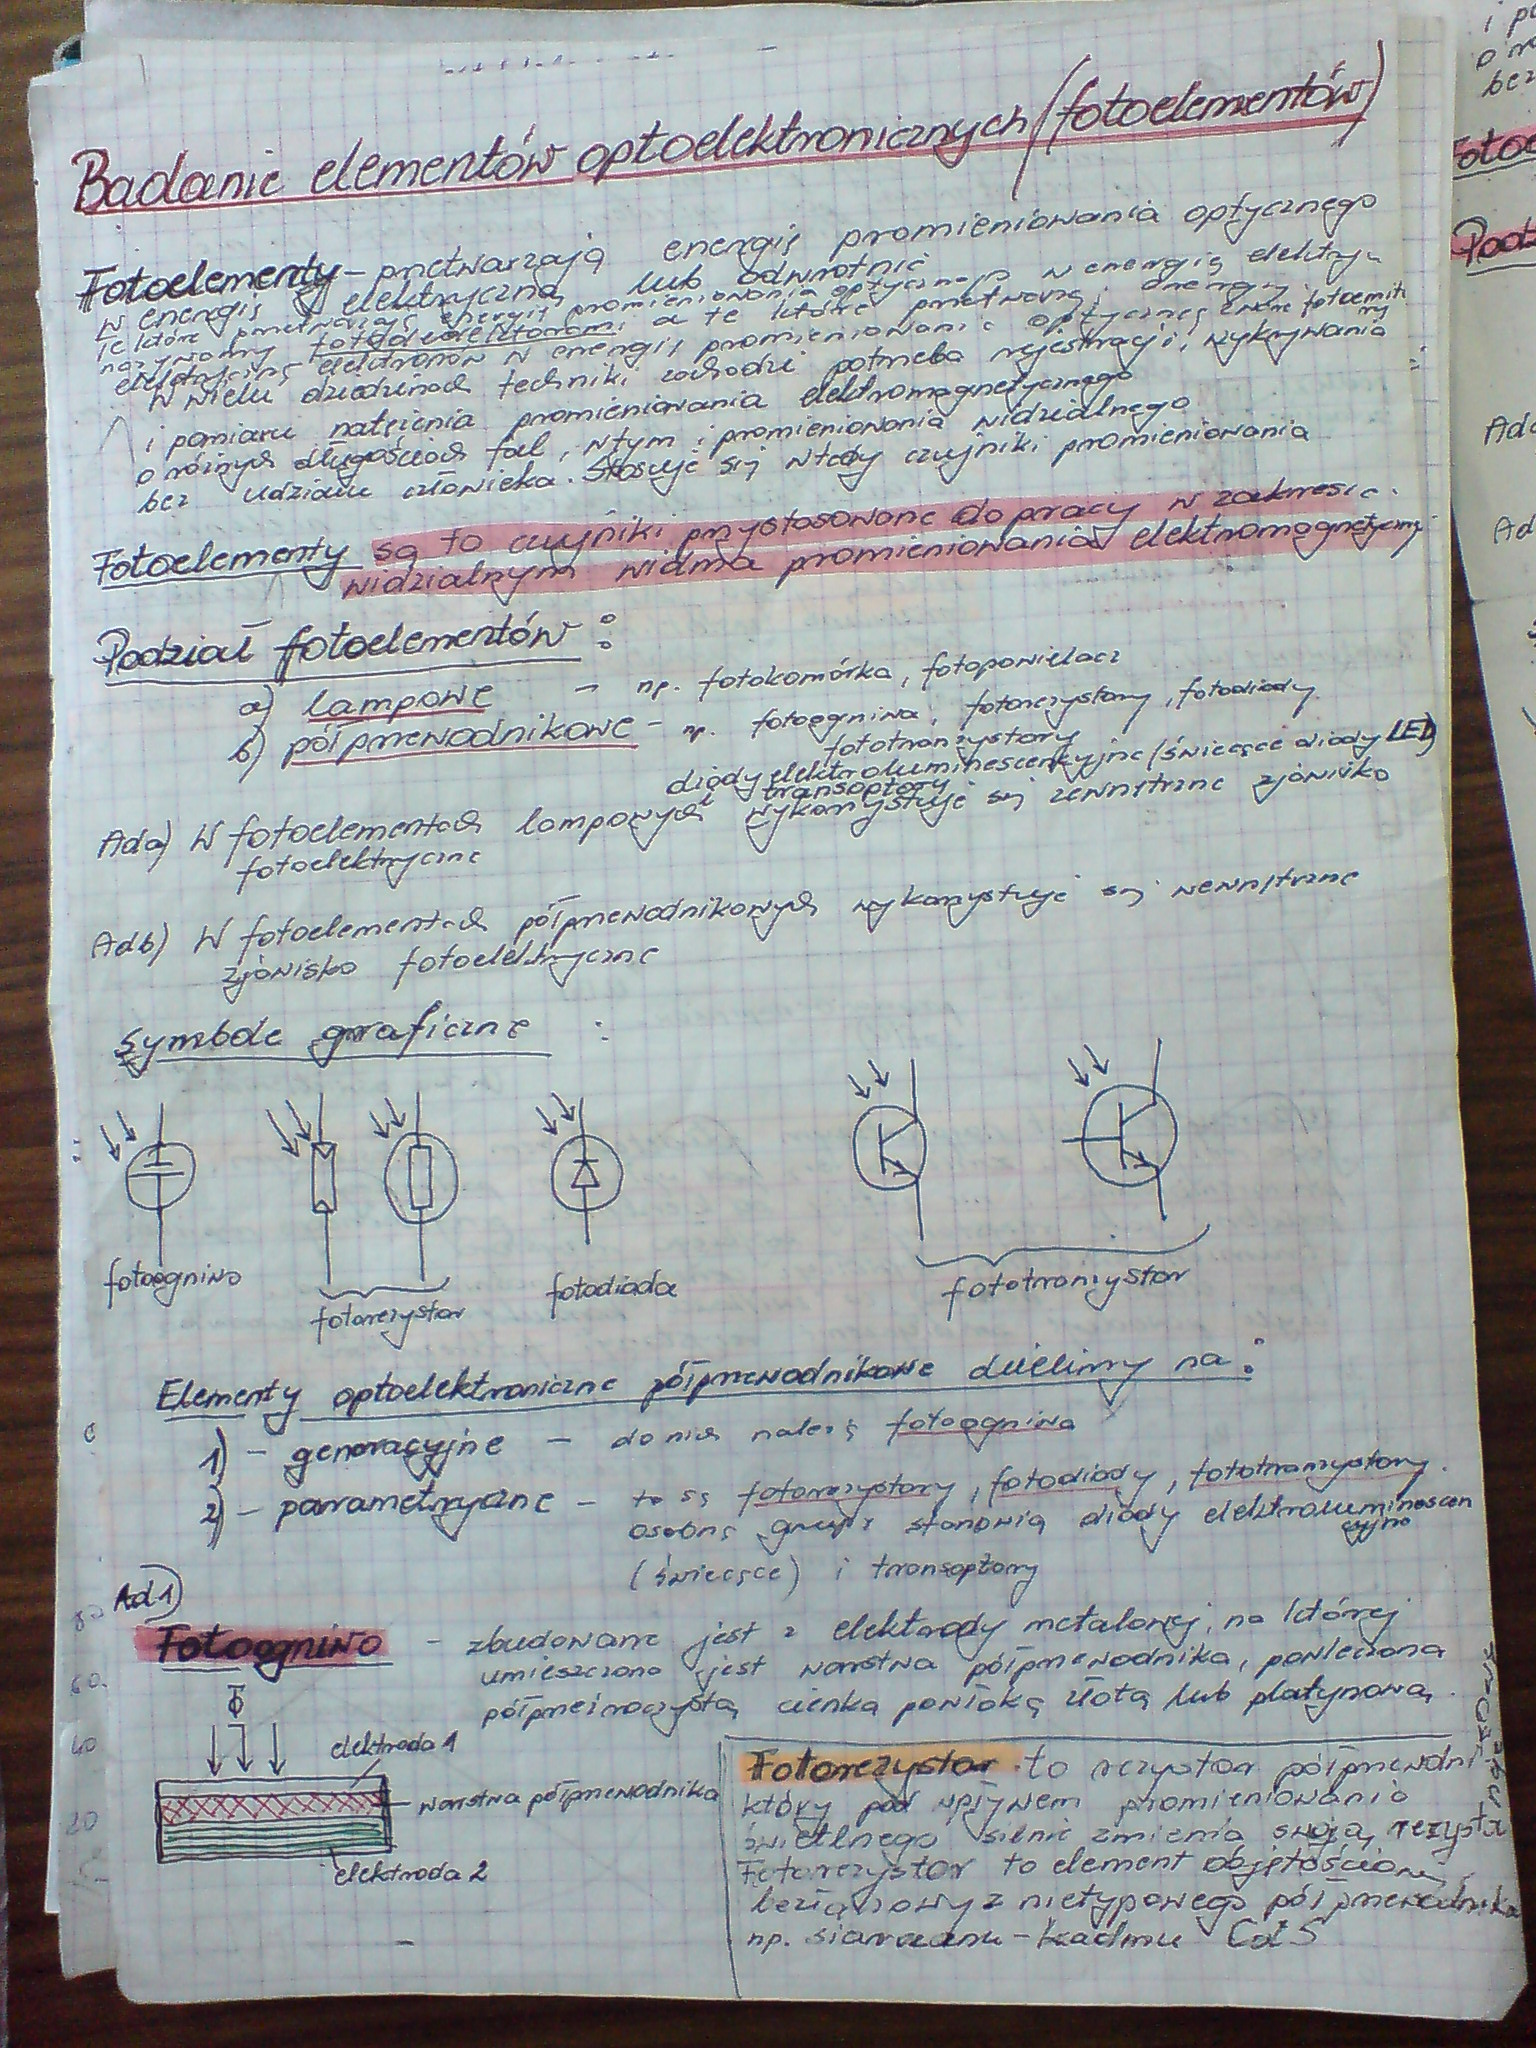 Badanie elementów optoelektronicznych (fotoelementów)
Fotoelementy - przetwarzają energię promieniowania optycznego
w energię elektryczną lub odwrotnie
te które przetwarzają energię promieniowania optycznego w energię elektry-
nazywamy fotodetektorami a te które przetwarzą energię
elektryczną elektronów w energię promieniowania optycznego zwane fotoemite
ry
W wielu dziedzinach techniki zachodzi potrzeba rejestracji, wykrywania
i pomiaru natężenia promieniowania elektromagnetycznego
o różnych długościach fal, w tym i promieniowania widzialnego
bez udziału człowieka. Stosuje się wtedy czujniki promieniowania
Fotoelementy są to czujniki przystosowane do pracy w zakresie
widzialnym widma promieniowania elektromagnetyczny
Podział fotoelementów:
a) lampowe - np. fotokomórka, fotopowielacz
b) półprzewodnikowe - np. fotoogniwa, fotorezystory, fotodiody
fototranzystory
diody elektroluminescencyjne (świecące diody LED)
transoptory
Ad a) W fotoelementach lampowych wykorzystuje się zewnętrzne zjawisko
fotoelektryczne
Ad b) W fotoelementach półprzewodnikowych wykorzystuje się wewnętrzne
zjawisko fotoelektryczne
Symbole graficzne :
fotoogniwo
fotorezystor
fotodioda
fototranzystor
Elementy optoelektroniczne półprzewodnikowe dzielimy na:
1) - generacyjne - do nich należą fotoogniwa
2) - parametryczne - to są fotorezystory, fotodiody, fototranzystory.
osobną grupę stanowią diody elektroluminescen
cyjne
(świecące) i transoptory
Ad 1)
Fotoogniwo - zbudowane jest z elektrody metalowej, na której
umieszczona jest warstwa półprzewodnika, powleczona
półprzeźroczystą cienką powłoką złotą lub platynową.
Φ
elektroda 1
warstwa półprzewodnika
elektroda 2
Fotorezystor to rezystor półprzewodni
który pod wpływem promieniowania
świetlnego silnie zmienia swoją rezysta
Fotorezystor to element objętościowy
bezłączowy z nietypowego półprzewodnika
np. siarczanu - kadmu CdS